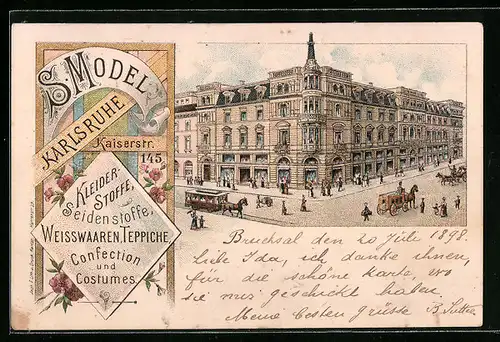 S. MODEL
KARLSRUHE
Kaiserstr.
145.
KLEIDER-
STOFFE,
Seidenstoffe,
WEISSWAAREN, TEPPICHE
Confection
und
Costumes.
Bruchsal den 20 Juli 1898.
Liebe Ida, ich danke ihnen,
für die schöne Karte, wo
sie mir geschickt haben.
Meine besten grüsse B.